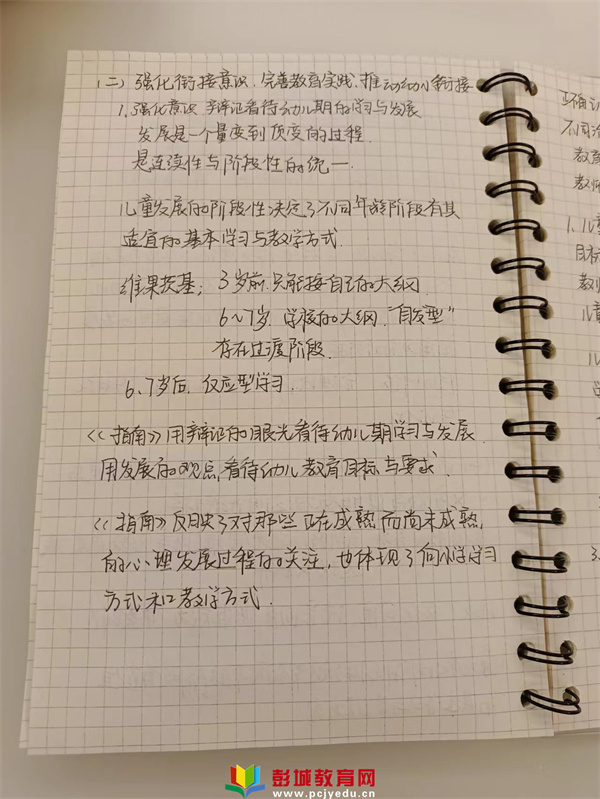 (二) 强化衔接意识、完善教育实践、推动幼小衔接
1. 强化意识 辩证看待幼儿期的学习与发展
发展是一个量变到质变的过程
是连续性与阶段性的统一
儿童发展的阶段性决定了不同年龄阶段有其
适宜的基本学习与教学方式.
维果茨基: 3岁前.只能按自己的大纲
6~7岁. 学校的大纲. "自发型"
存在过渡阶段.
6、7岁后. 反应型学习.
《指南》用辩证的眼光看待幼儿期学习与发展
用发展的观点,看待幼儿教育目标与要求.
《指南》反映了对那些正在成熟而尚未成熟,
的心理发展过程的关注, 也体现了向小学学习
方式和教学方式.
正确认
不同
教育
教师
1. 儿童
目标
教师
儿童
彭城教育网
www.pcjyedu.cn